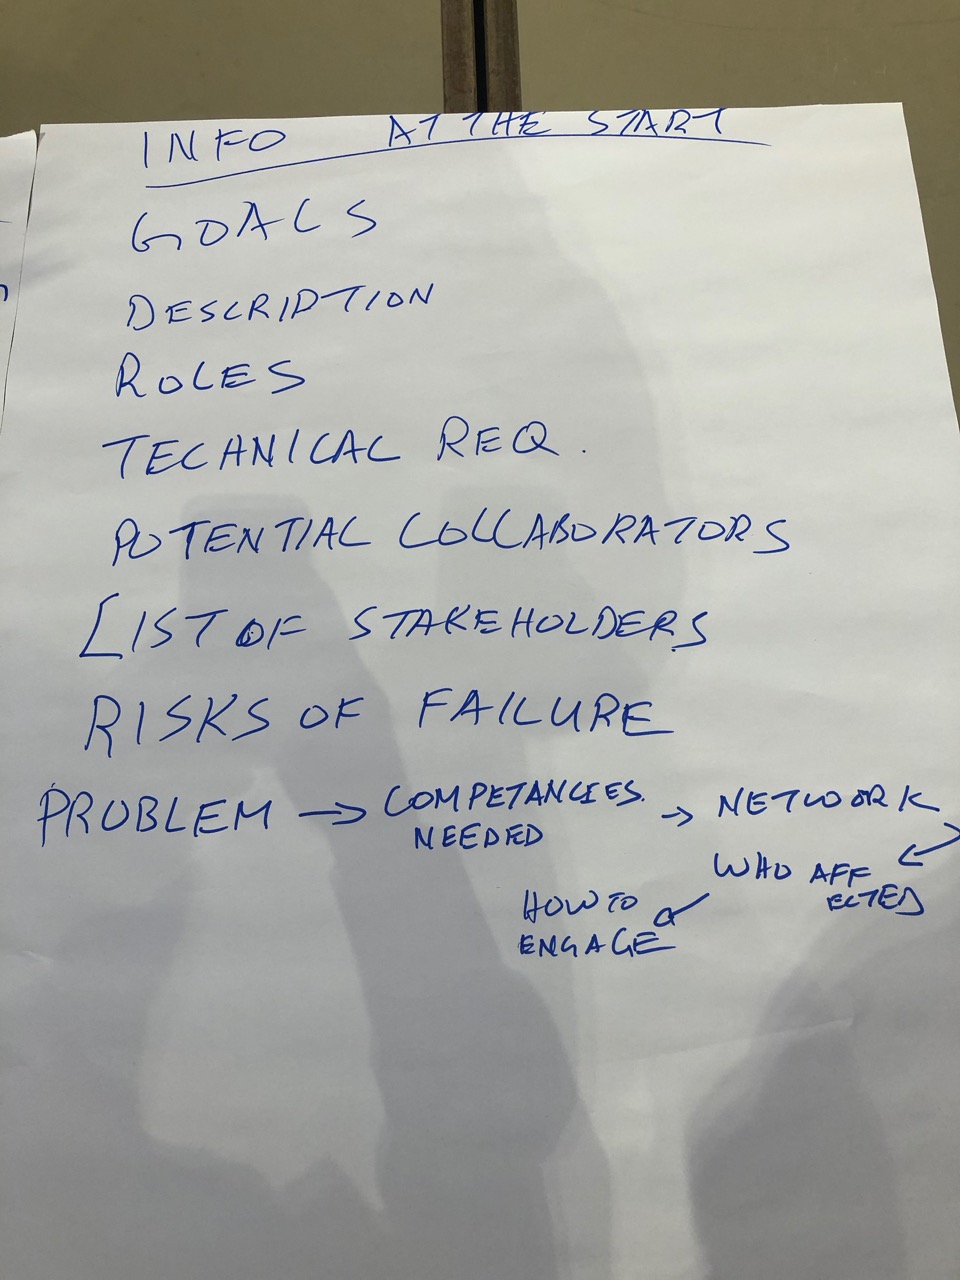 INFO AT THE START
GOALS
DESCRIPTION
ROLES
TECHNICAL REQ.
POTENTIAL COLLABORATORS
LIST OF STAKEHOLDERS
RISKS OF FAILURE
PROBLEM → COMPETANCIES NEEDED → NETWORK
↙ WHO AFFECTED
↙ HOW TO ENGAGE